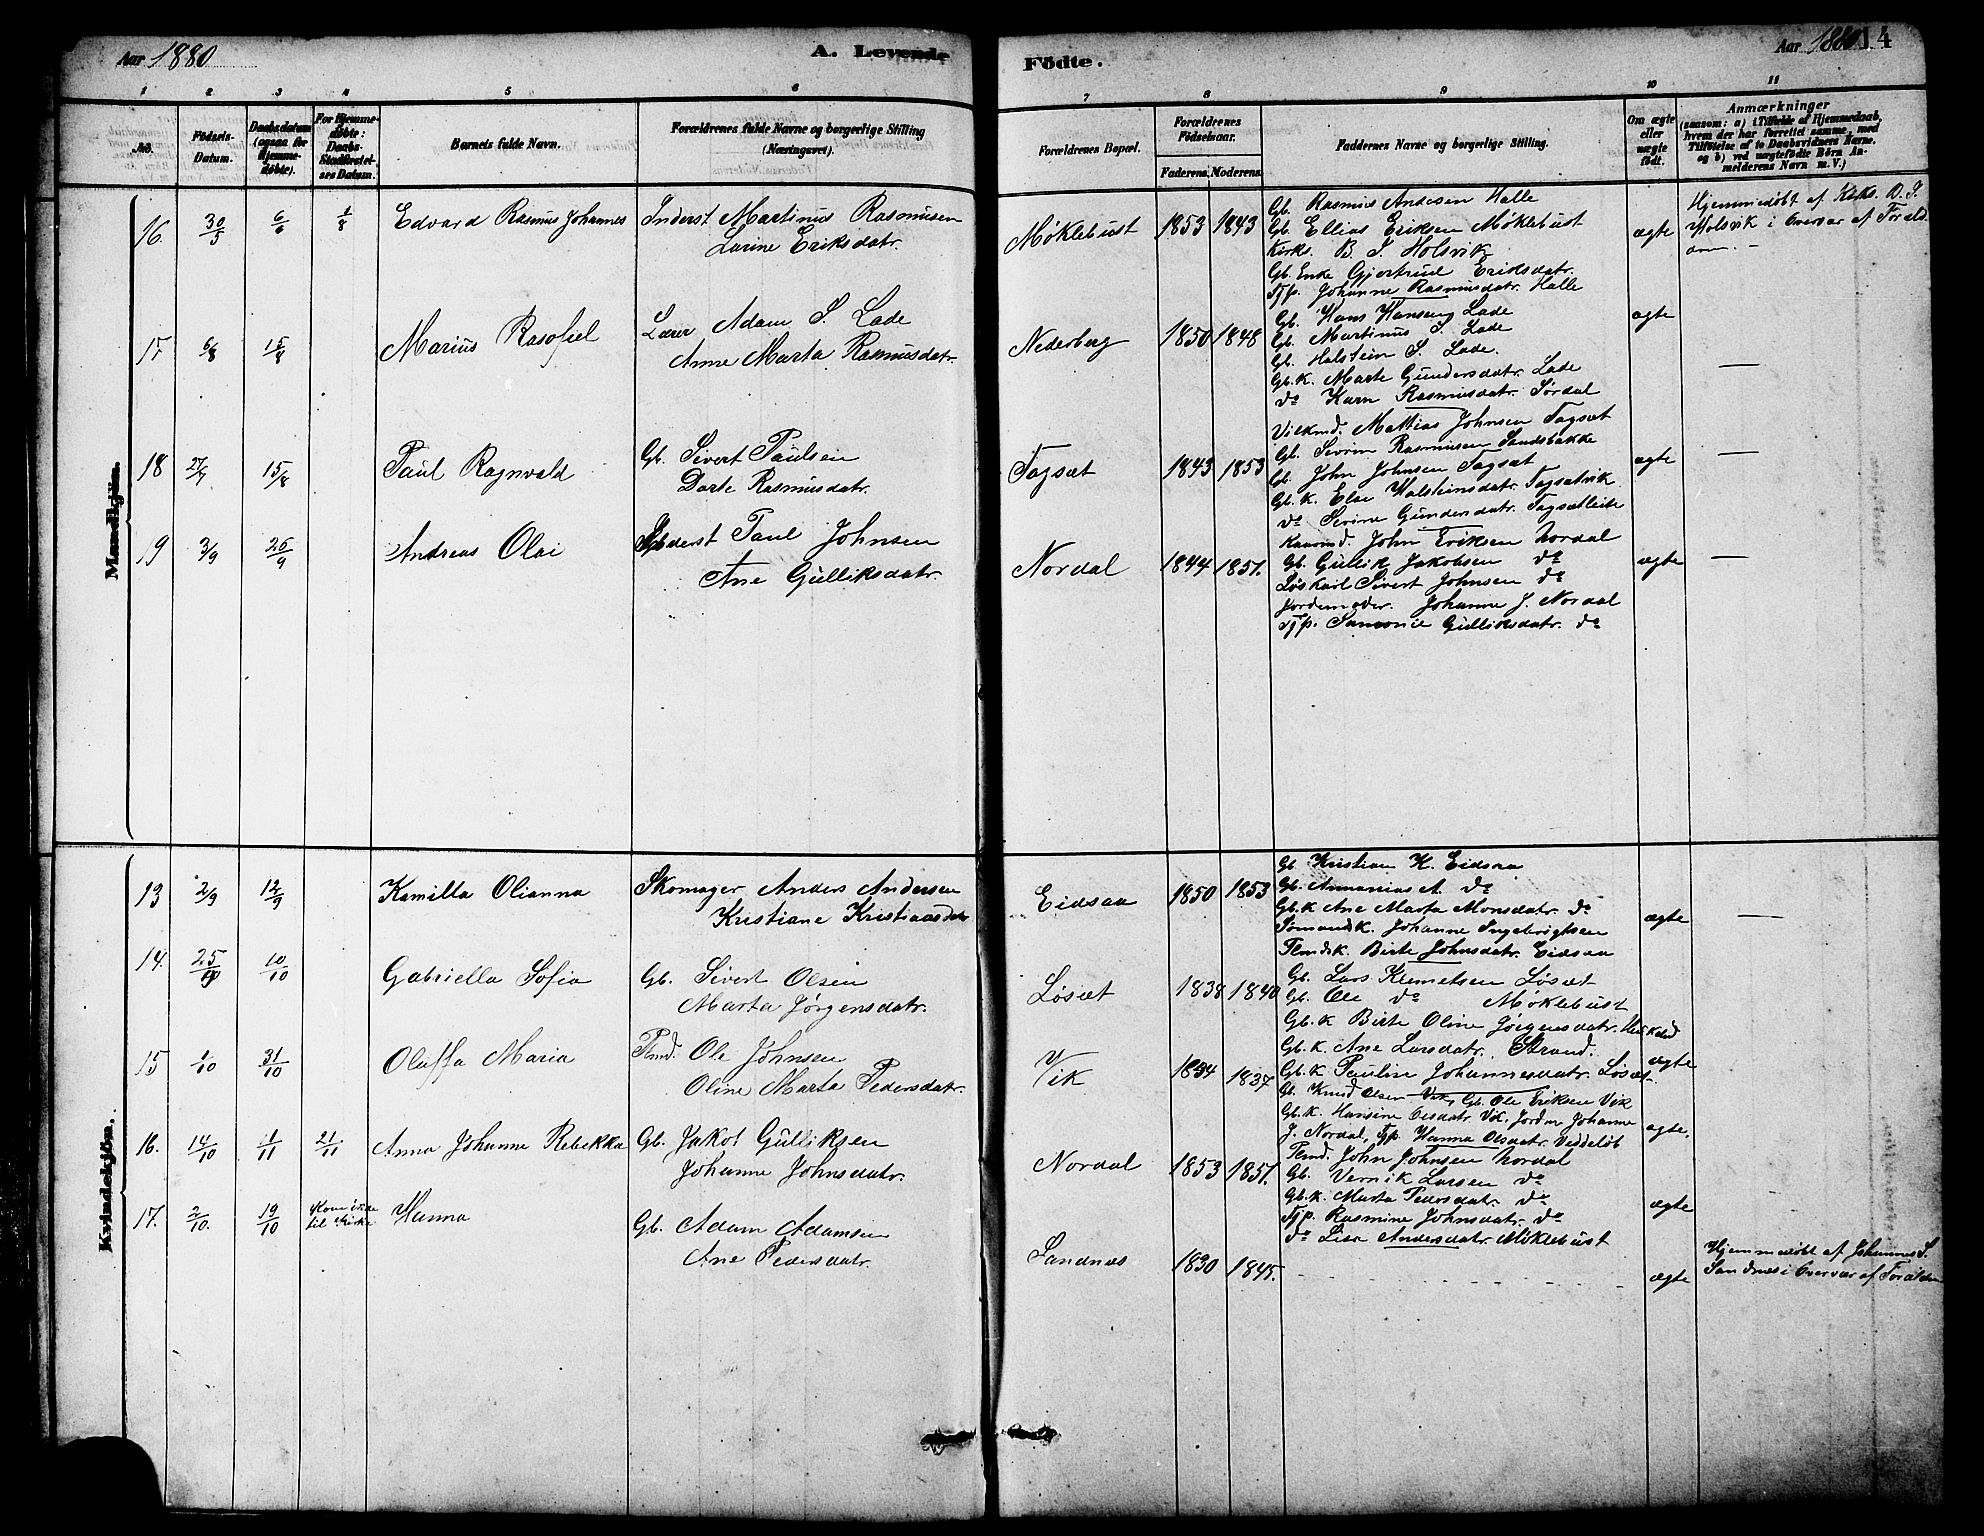 Aar 1880
A. Levende
Födte.
Aar 1880
14
1 2 3 4 5 6 7 8 9 10 11
No.
Födsels-Datum.
Daabsdatum (ogsaa for Hjemmedöbte).
For Hjemmedöbte: Daabs-Stadfæstelses Datum.
Barnets fulde Navn.
Forældrenes fulde Navne og borgerlige Stilling (Næringsvei).
Forældrenes Bopæl.
Forældrenes Födselsaar.
Faderens. Moderens.
Faddernes Navne og borgerlige Stilling.
Om ægte eller uægte födt.
Anmærkninger
(saasom: a) i Tilfælde af Hjemmedaab, hvem der har forrettet samme, med Tilföielse af to Daabsvidners Navne. og b) ved uægtefödte Börn Anmelderens Navn m. V.)
Mandkjön.
16. 30/5 6/6 1/8 Edvard Rasmus Johannes
Inderst Martinus Rasmusen
Larine Eriksdatr.
Møklebust 1853 1843
Gb. Rasmus Andesen Halle
Gb. Ellias Eriksen Møklebust
Kirks. B. J. Holsvik
Gb. Enke Gjertrud Eriksdatr.
Tjp. Johanne Rasmusdatr. Halle
ægte
Hjemmedøbt af Kirks. B. J.
Holsvik i Overvær af Foræld
17. 6/8 15/8 Marius Rasofiel
Lærer Adam S. Lade
Anne Marta Rasmusdatr.
Nederberg 1850 1848
Gb. Hans Hanseng Lade
Gb. Martinus S. Lade
Gb. Halstein S. Lade.
Gb. K. Marte Gundersdatr. Lade
do Karn Rasmusdatr. Sørdal
ægte —
18 27/7 15/8 Paul Ragnvald
Gb. Sivert Paulsen
Dorte Rasmusdatr.
Fagsæt 1843 1853
Vilkmd. Mattias Johnsen Fagsæt
Gb. Sevrin Rasmusen Sandsbakke
Gb. John Johnsen Fagsæt
Gb. K. Elae Halsteinsdatr. Fagsætvik
do Sevine Gundersdatr. Fagsætleite
ægte —
19 3/9 26/9 Andreas Olai
Inderst Paul Johnsen
Ane Gulliksdatr.
Nordal 1844 1851.
John Eriksen Nordal
Gb. Gullik Jakobsen do
Løskarl Sivert Johnsen do
Jordemoder. Johanne J. Nordal
Tjp. Samonie Gulliksdatr. do
ægte —
Kvindekjön.
13 2/9 12/9 Kamilla Olianna
Skomager Anders Andersen
Kristiane Kristiansdatr
Eidsaa 1850 1853
Gb Kristian K. Eidsaa
Gb. Annanias A. do
Gb. K Ane Marta Monsdatr. do
Johanne Ingebrigtsen
Flmdsk. Birte Johnsdatr. Eidsaa
ægte —
14. 25/9 10/10 Gabriella Sofia
Gb. Sivert Olsen
Marta Jørgensdatr.
Løsæt 1838 1840
Gb. Lars Klemetsen Løsæt
Gb. Ole do Møklebust
Gb. K Birte Oline Jørgensdatr.
Gb. K. Ane Larsdatr. Strand.
Gb. K Pauline Johannesdatr. Løsæt
ægte
15 1/10 31/10 Oluffa Maria
Flmd. Ole Johnsen
Oline Marta Pedersdatr.
Vik 1834 1837
Gb. Knud Olsen Vik, Gb. Ole Eriksen Vik
Gb. K. Hansine Olsdatr. Vik. Jordm Johanne
J. Nordal, Tjp. Hanna Olsdatr. Veddeløb
ægte.
16. 14/10 1/11 21/11 Anna Johanne Rebekka
Gb. Jakob Gulliksen
Johanne Johnsdatr.
Nordal 1853 1851.
Flmd. John Johnsen Nordal
Gb. Vernik Larsen do
Gb. K. Marta Pedersdatr. do
Tjp. Rasmine Johnsdatr. do
do Lisa Andersdatr. Møklebust
ægte
17. 2/10. 19/10 Kom ikke til Kirke Hanna
Gb. Adam Adamsen
Ane Pedersdatr.
Sandnes 1830 1845.
ægte
Hjemmedøbt af Johannes S.
Sandnæs i Overvær af Forældre